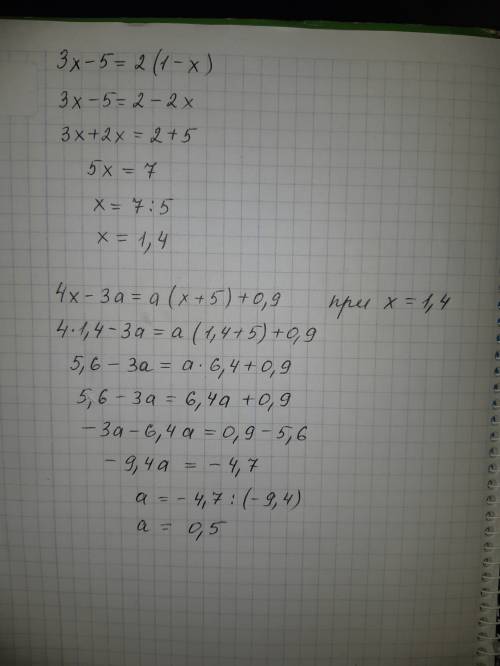 3x-5=2(1-x)
3x-5=2-2x
3x+2x=2+5
5x=7
x=7:5
x=1,4
4x-3a=a(x+5)+0,9 при x=1,4
4·1,4-3a=a(1,4+5)+0,9
5,6-3a=a·6,4+0,9
5,6-3a=6,4a+0,9
-3a-6,4a=0,9-5,6
-9,4a=-4,7
a=-4,7:(-9,4)
a=0,5